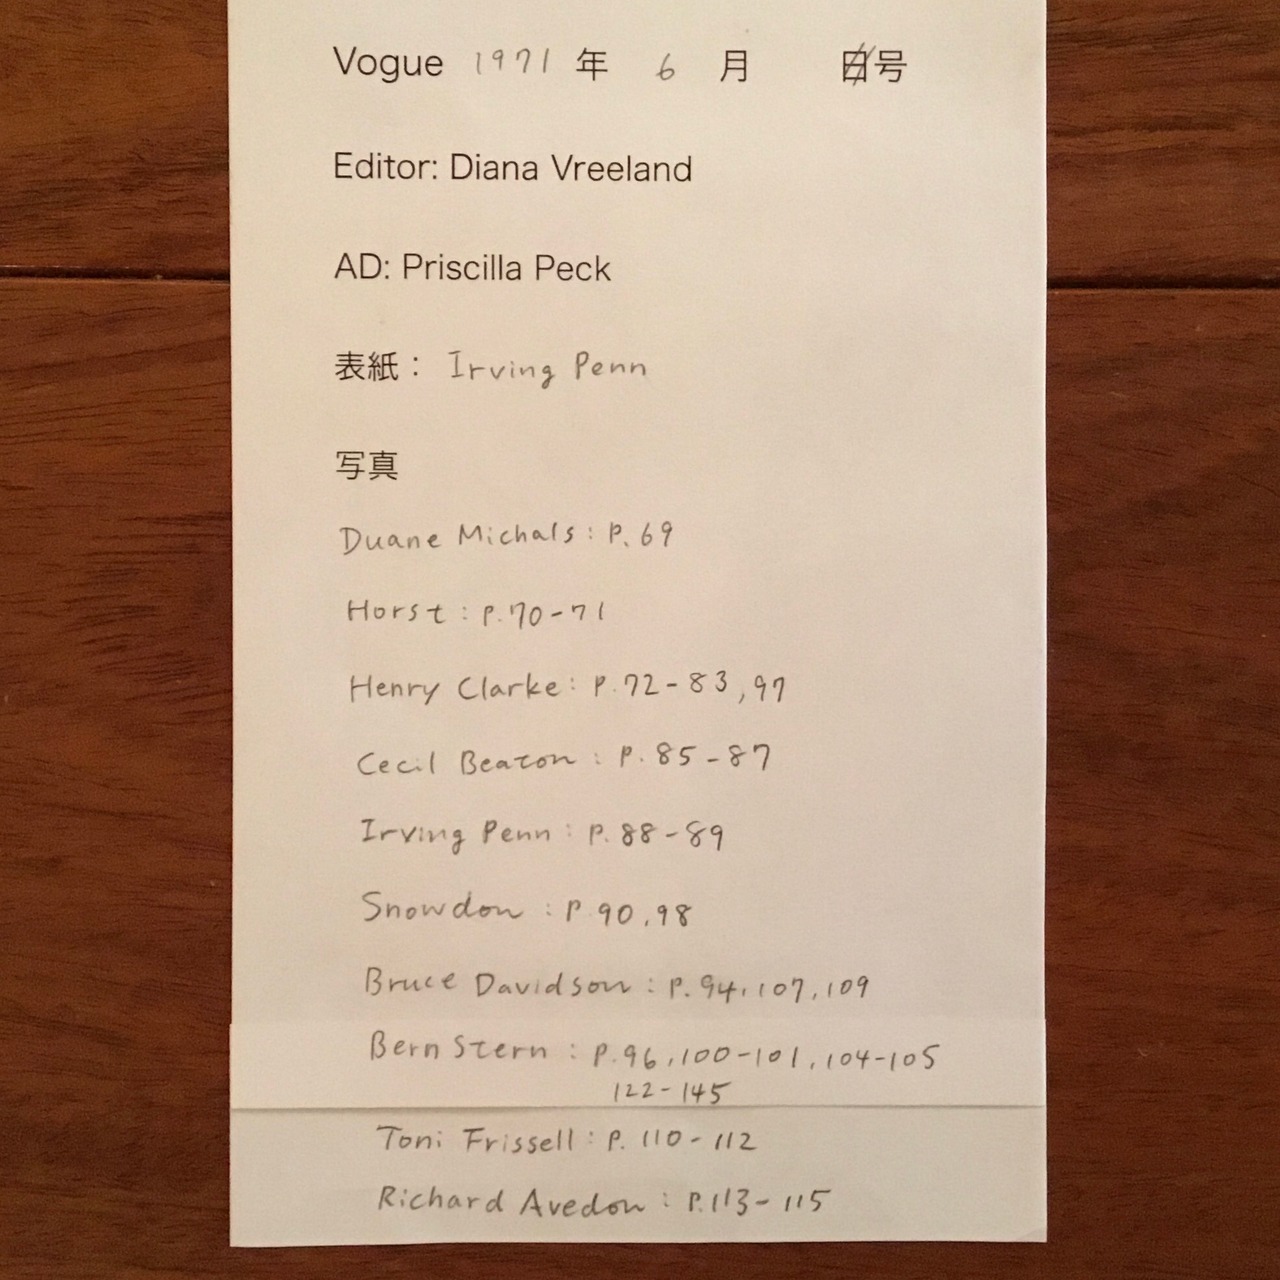 Vogue 1971 年 6 月 日号
Editor: Diana Vreeland
AD: Priscilla Peck
表紙： Irving Penn
写真
Duane Michals : P. 69
Horst : P. 70-71
Henry Clarke : P. 72-83, 97
Cecil Beaton : P. 85-87
Irving Penn : P. 88-89
Snowdon : P 90, 98
Bruce Davidson : P. 94, 107, 109
Bern Stern : P. 96, 100-101, 104-105
122-145
Toni Frissell : P. 110-112
Richard Avedon : P. 113-115